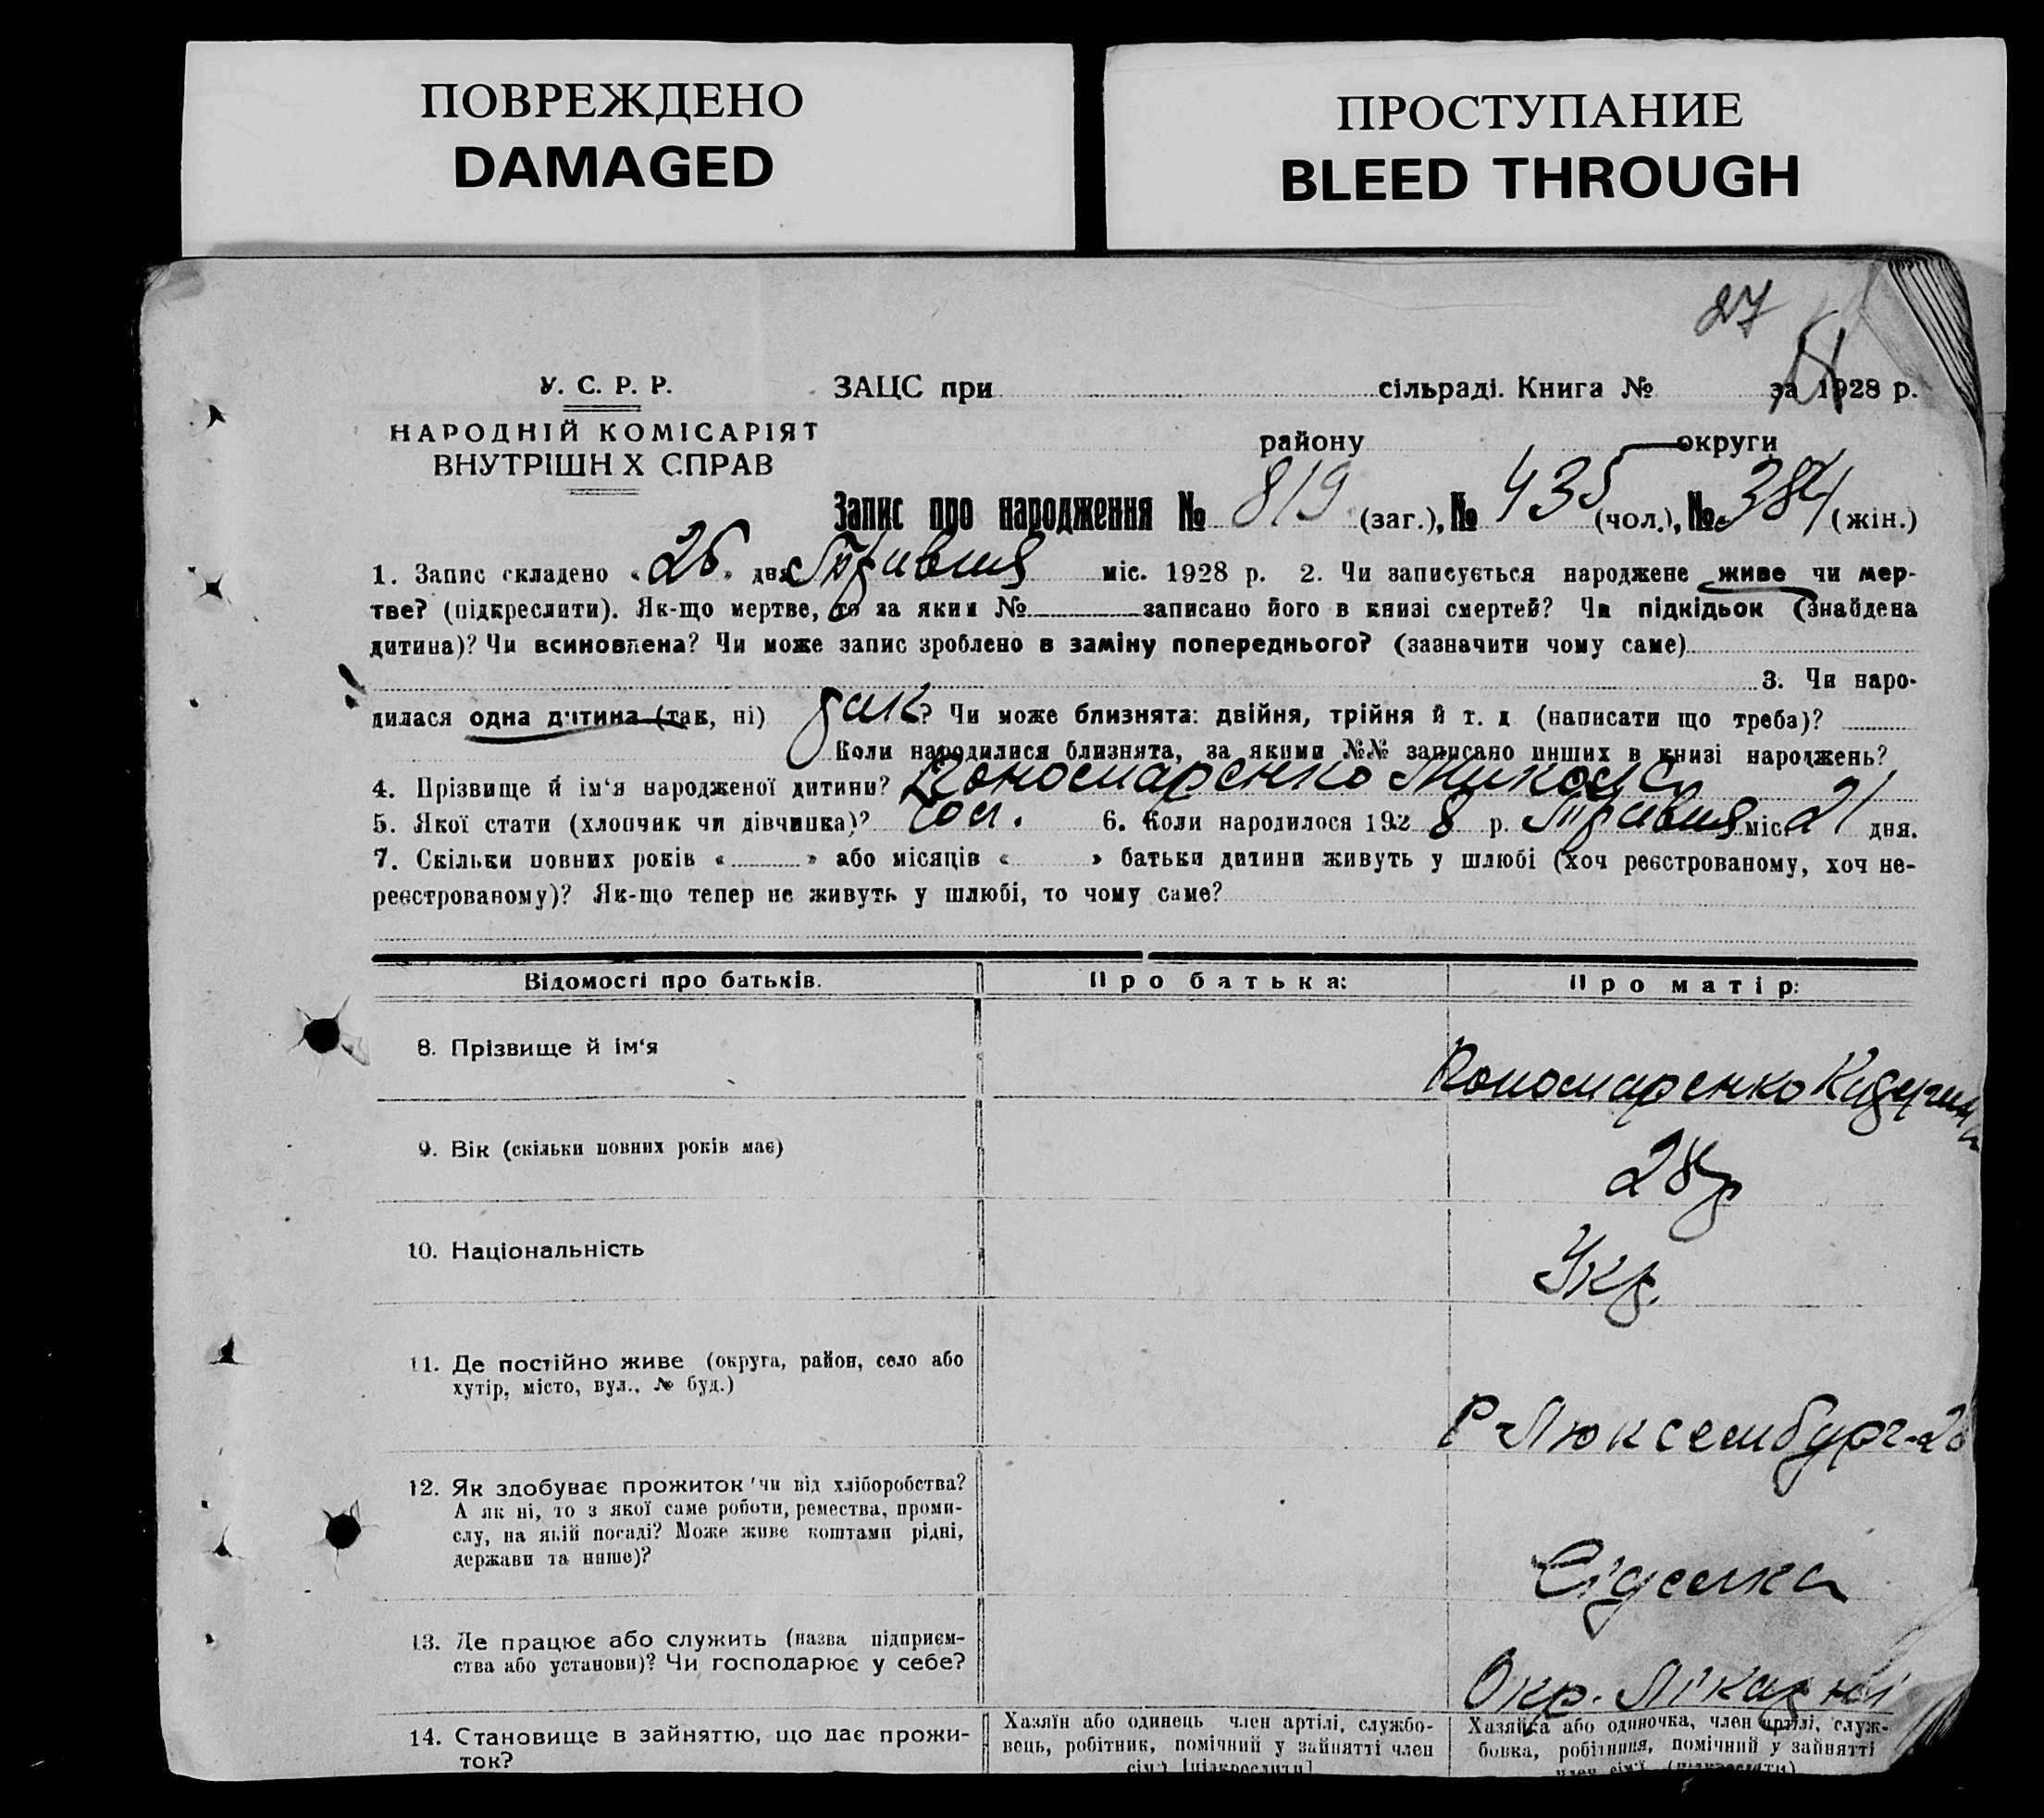 ПОВРЕЖДЕНО
DAMAGED
ПРОСТУПАНИЕ
BLEED THROUGH
27
У. С. Р. Р.
НАРОДНІЙ КОМІСАРІЯТ
ВНУТРІШН Х СПРАВ
ЗАЦС при сільраді. Книга № за 1928 р.
району округи
Запис про народження № 819 (заг.), № 435 (чол.), № 384 (жін.)
1. Запис складено « 26 » дня Травня міс. 1928 р. 2. Чи записується народжене живе чи мер-
тве? (підкреслити). Як-що мертве, то за яким № записано його в книзі смертей? Чи підкідьок (знайдена
дитина)? Чи всиновлена? Чи може запис зроблено в заміну попереднього? (зазначити чому саме)
3. Чи наро-
дилася одна дитина (так, ні) так? Чи може близнята: двійня, трійня й т. д (написати що треба)?
Коли народилися близнята, за якими №№ записано инших в книзі народжень?
4. Прізвище й ім'я народженої дитини? Пономаренко Микола
5. Якої стати (хлопчик чи дівчинка)? чол. 6. Коли народилося 1928 р. Травня міс. 21 дня.
7. Скільки повних років « » або місяців « » батьки дитини живуть у шлюбі (хоч реєстрованому, хоч не-
реєстрованому)? Як-що тепер не живуть у шлюбі, то чому саме?
Відомості про батьків. Про батька: Про матір:
8. Прізвище й ім'я
Пономаренко
9. Вік (скільки повних років має)
28 р
10. Національність
Укр.
11. Де постійно живе (округа, район, село або
хутір, місто, вул., № буд.)
Р-Люксембург-
12. Як здобуває прожиток чи від хліборобства?
А як ні, то з якої саме роботи, ремества, проми-
слу, на якій посаді? Може живе коштами рідні,
держави та инше)?
Сіделка
13. Де працює або служить (назва підприєм-
ства або установи)? Чи господарює у себе?
Окр. Лікарні
14. Становище в зайняттю, що дає прожи-
ток?
Хазяїн або одинець член артілі, службо-
вець, робітник, помічний у зайнятті член
сім'ї [підкреслити]
Хазяйка або одиночка, член артілі, служ-
бовка, робітниця, помічний у зайнятті
член сім'ї (підкреслити)